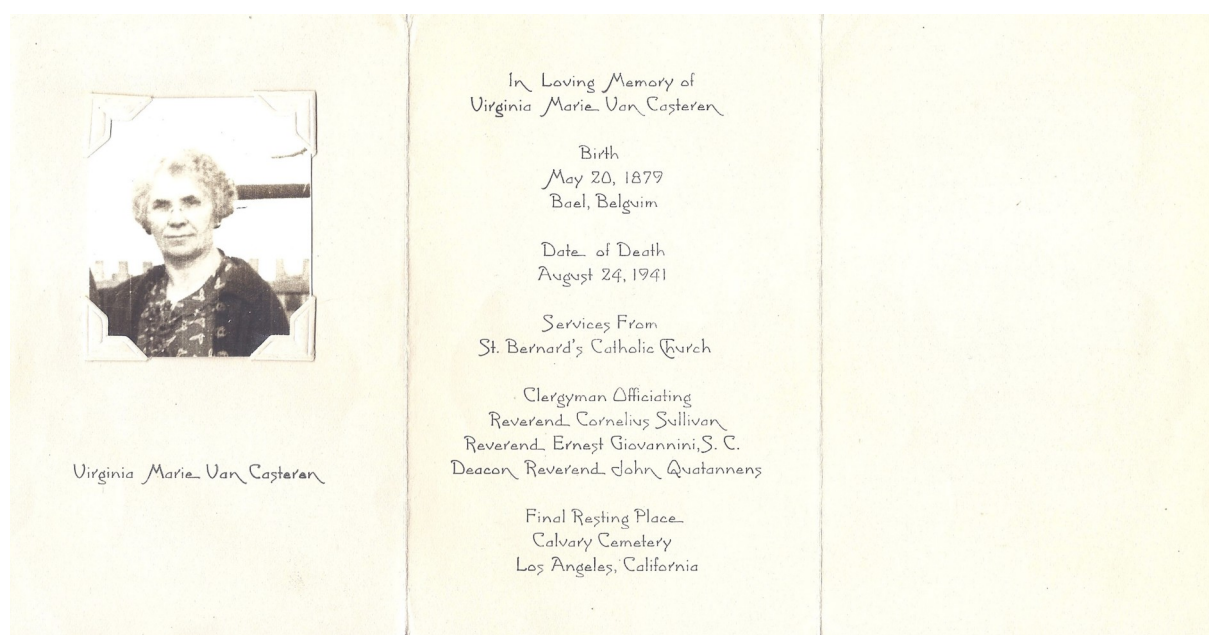 Virginia Marie Van Casteren
In Loving Memory of
Virginia Marie Van Casteren
Birth
May 20, 1879
Bael, Belguim
Date of Death
August 24, 1941
Services From
St. Bernard's Catholic Church
Clergyman Officiating
Reverend Cornelius Sullivan
Reverend Ernest Giovannini, S. C.
Deacon Reverend John Quatannens
Final Resting Place
Calvary Cemetery
Los Angeles, California